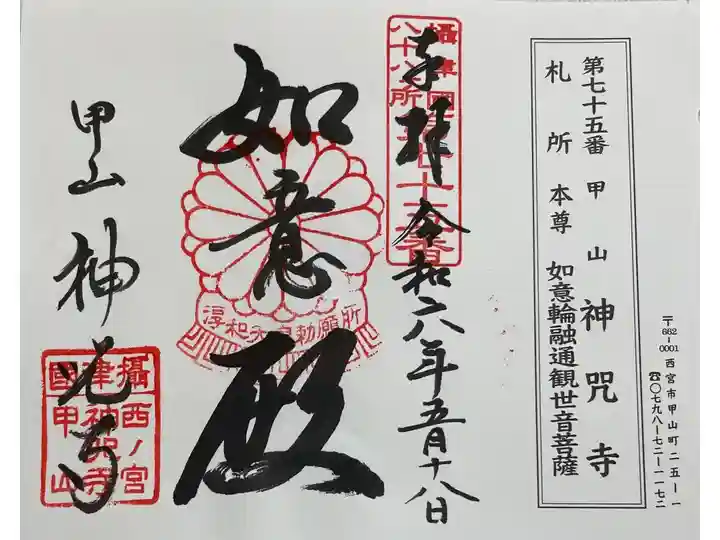 〒662-0001 西宮市甲山町二五ー一
☎〇七九八ー七二ー一一七二
第七十五番 甲山 神呪寺
札所 本尊 如意輪融通観世音菩薩
奉拝 令和六年五月十八日
攝津國
八十八所
第七十五番
如意殿
淳和天皇勅願所
甲山 神呪寺
攝津國
西ノ宮
神呪寺
甲山